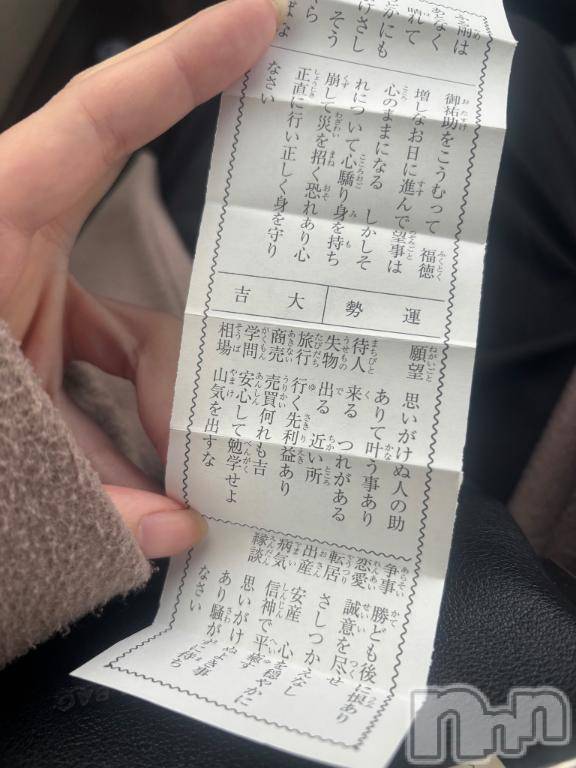 雨は
なく
れて
かにも
さし
そう
ら
まな
御祐助をこうむって 福徳
増しなお日に進んで望事は
心のままになる しかしそ
れについて心驕り身を持ち
崩して災を招く恐れあり心
正直に行い正しく身を守り
なさい
運勢
大吉
願望 思いがけぬ人の助
ありて叶う事あり
待人 来る つれがある
失物 出る 近い所
旅行 行く先利益あり
商売 売買何れも吉
学問 安心して勉学せよ
相場 山気を出すな
争事 勝ども後に恨あり
恋愛 誠意を尽せ
転居 さしつかえなし
出産 安産
病気 信神で平癒す
縁談 思いがけぬ
あり騒がず
心を穏やかに
き事
に待ち
なさい
nnn